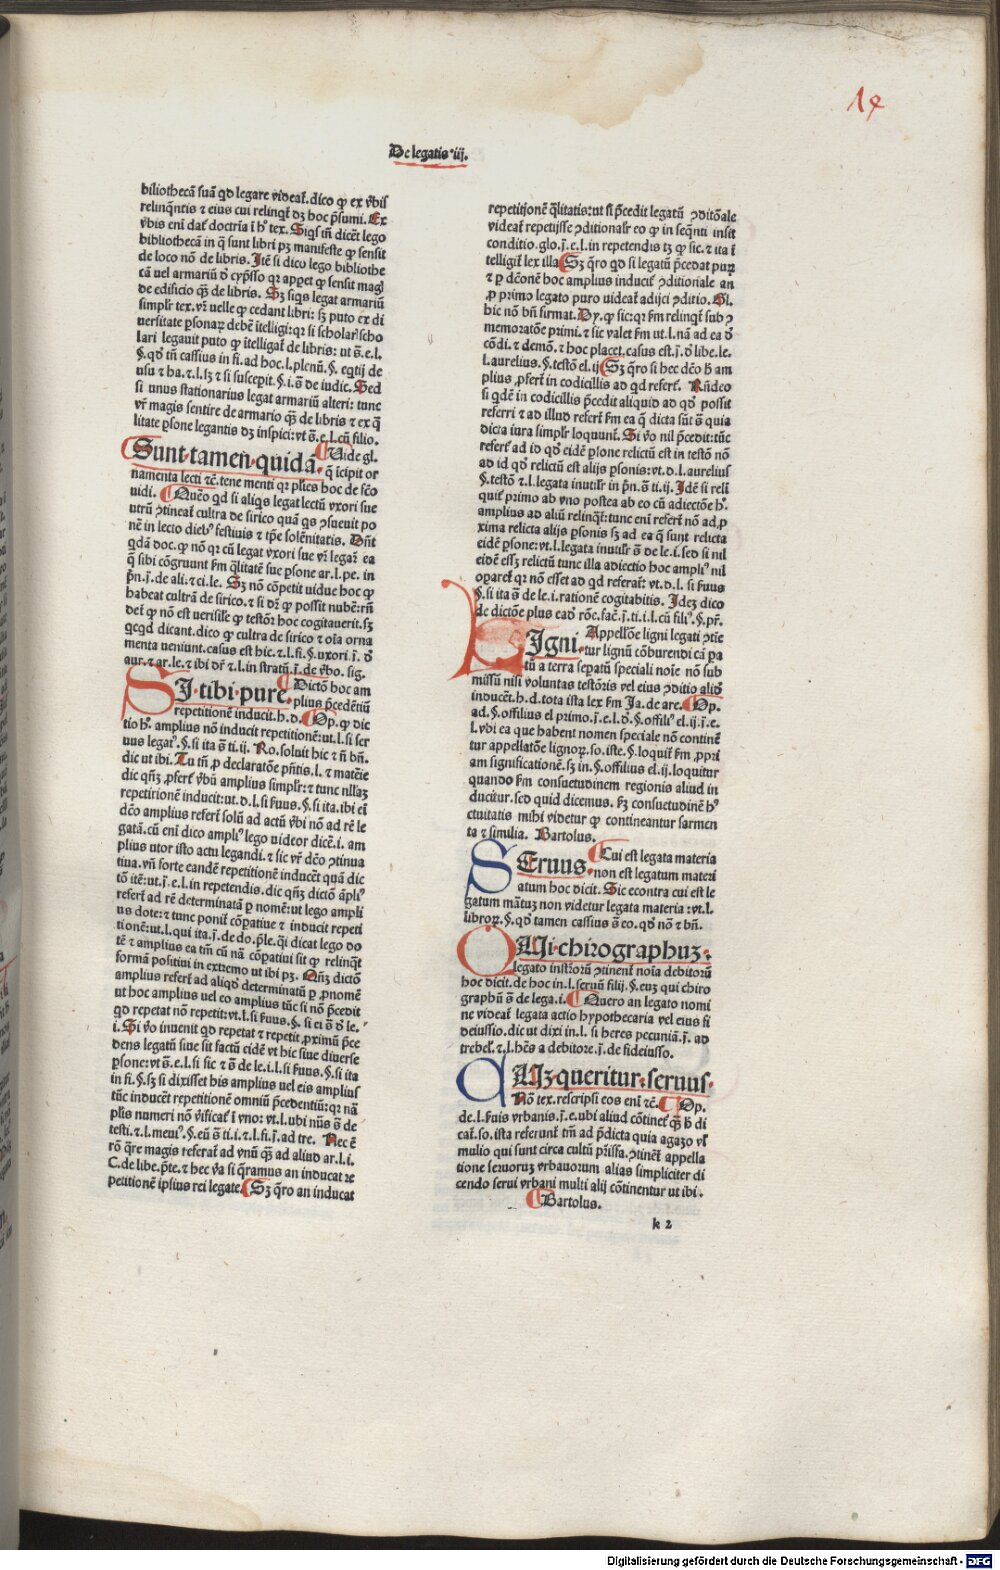 14
De legatis·iij.
biliothecā suā qd legare videat̄. dico ꝙ ex v̄bis
relinquētis ⁊ eius cui relinqt̄ dꝫ hoc p̄sumi. Ex
v̄bis eni dat̄ doctrīa ī hꝰ tex. Siqs tn̄ dicēt lego
bibliothecā in q̄ sunt libri pꝫ manifeste ꝙ sensit
de loco nō de libris. Itē si dico lego bibliothe
cā vel armariū d̓ cyp̄sso qꝛ appet ꝙ sensit magꝭ
de edificio qꝫ de libris. Sꝫ siqs legat armariū
simplr̄ tex. vr̄ velle ꝙ cedant libri: sꝫ puto ex di
uersitate ꝑsonaꝝ debē ītelligi: qꝛ si scholarꝭ scho
lari legauit puto ꝙ ītelligat̄ de libris: ut s̄. e. l.
§. qd̓ tn̄ cassius in fi. ad hoc. l. plenū. §. eqtij de
usu ⁊ ha. ⁊. l. lꝫ ⁊ si suscepit. §. i. s̄ de iudic. Sed
si unus stationarius legat armariū alteri: tunc
vr̄ magis sentire de armario qꝫ de libris ⁊ ex q̄
litate ꝑsone legantis dꝫ inspici: vt s̄. e. l. cū filio.
Sunt·tamen·quidā. Vide gl.
q̄ īcipit or
namenta lecti ⁊c̄. tene menti qꝛ pl̄ies hoc de fc̄o
uidi. Quēo qd si aliqs legat lectū vxori sue
utrū ↄtineat̄ cultra de sirico quā qs ↄsueuit po
nē in lecto diebꝰ festiuis ⁊ tꝑe solēnitatis. Dn̄t
qdā doc. ꝙ nō qꝛ cū legat vxori sue vr̄ legar̄ ea
q̄ sibi cōgruunt s̄m q̄litatē sue ꝑsone ar. l. pe. in
pn̄. j̄. de ali. ⁊ ci. le. Sꝫ nō cōpetit uidue hoc ꝙ
habeat cultrā de sirico. ⁊ si dr̄ ꝙ possit nubē: rn̄
det̄ ꝙ nō est verisile ꝙ testōꝛ hoc cogitauerit. sꝫ
qcqd dicant. dico ꝙ cultra de sirico ⁊ oīa orna
menta veniunt. casus est hic. ⁊. l. fi. §. uxori. j̄. d̓
aur. ⁊ ar. le. ⁊ ibi dr̄ ⁊. l. in stratū. j̄. de v̄bo. sig.
SI·tibi·pure. Dictō hoc am
plius p̄cedētiū
repetitionē inducit. h. d. Op. ꝙ dic
tio hꝰ. amplius nō inducit repetitionē: ut. l. si ser
uus legatꝰ. §. si ita s̄ ti. ij. Ro. soluit hic ⁊ n̄ bn̄.
dic ut ibi. Tu tn̄ ꝓ declaratōe pn̄tis. l. ⁊ matēie
dic qn̄ꝫ ꝓfert̄ v̄bū amplius simplr̄: ⁊ tunc nllaꝫ
repetitionē inducit: ut. d. l. si ẜuus. §. si ita. ibi ei̅
dc̄o amplius refert̄ solū ad actū v̄bi nō ad rē le
gatā. cū eni dico ampliꝰ lego uideor dicē. i. am
plius utor isto actu legandi. ⁊ sic vr̄ dc̄o ↄtinua
tiua. vn̄ forte eandē repetitionē inducēt quā dic
tō itē: ut. j̄. e. l. in repetendis. dic qn̄ꝫ dictō āpliꝰ
refert̄ ad rē determinatā ꝑ nomē: ut lego ampli
us dote: ⁊ tunc ponit̄ cōꝑatiue ⁊ inducit repeti
tionē: ut. l. qui ita. j̄. de do. p̄le. q̄i dicat lego do
tē ⁊ amplius ea tn̄ cū nā cōpatiui sit ꝙ relinqt̄
formā positiui in extremo ut ibi pꝫ. Qn̄ꝫ dictō
amplius refert̄ ad aliqd determinatū ꝑ ꝓnomē
ut hoc amplius vel eo amplius tūc si nō p̄cedit
qd repetat nō repetit: vt. l. si ẜuus. §. si ei s̄ d̓ le.
i. Si v̓o inuenit qd repetat ⁊ repetit ꝓximū p̄ce
dens legatū siue sit factū eidē vt hic siue diuerse
ꝑsone: vt s̄. e. l. si sic ⁊ s̄ de le. i. l. si ẜuus. §. si ita
in fi. §. sꝫ si dixisset his amplius vel eis amplius
tūc inducēt repetitionē omniū p̄cedentiū: qꝛ nā
pl̄is numeri nō v̓ificat̄ ī vno: vt. l. ubi nūs s̄ de
testi. ⁊. l. meuiꝰ. §. eū s̄ ti. i. ⁊. l. fi. j̄. ad tre. Nec ē
rō q̄re magis referat̄ ad vnū qꝫ ad aliud ar. l. i.
C. de libe. p̄te. ⁊ hec v̓a si q̄ramus an inducat re
petitionē ipsius rei legate. Sꝫ q̄ro an inducat
repetitionē q̄litatis: ut si p̄cedit legatū ↄditōale
videat̄ repetijsse ↄditionalr̄ eo ꝙ in seq̄nti insit
conditio. glo. j̄. e. l. in repetendis tꝫ ꝙ sic. ⁊ ita ī
telligit̄ lex illa Sꝫ q̄ro qd si legatū p̄cedat puꝝ
⁊ ꝑ dc̄onē hoc amplius inducit̄ ↄditionale an
ꝓ primo legato puro uideat̄ adijci ↄditio. Gl.
hic nō bn̄ firmat. Dy. ꝙ sic: qꝛ s̄m relinqt̄ sub ↄ
memoratōe primi. ⁊ sic valet s̄m ut. l. nā ad ea d̓
cōdi. ⁊ demō. ⁊ hoc placet. casus est. j̄. d̓ libe. le.
l. aurelius. §. testō el. ij Sꝫ q̄ro si hec dc̄o h̄ am
plius ꝓfert̄ in codicillis ad qd refert̄. Rn̄deo
si qdē in codicillis p̄cedit aliquid ad qd̓ possit
referri ⁊ ad illud refert̄ s̄m ea q̄ dicta sūt s̄ quia
dicta iura simplr̄ loquunt̄. Si v̓o nil p̄cedit: tūc
refert̄ ad id qd̓ eidē ꝑsone relictū est in testō nō
ad id qd̓ relictū est alijs ꝑsonis: vt. d. l. aurelius
§. testō ⁊. l. legata inutilr̄ in pn̄. s̄ ti. ij. Idē si reli
quit̄ primo ab vno postea ab eo cū adiectōe hꝰ.
amplius ad aliū relinqt̄: tunc eni refert̄ nō ad ꝓ
xima relicta alijs ꝑsonis sꝫ ad ea q̄ sunt relicta
eidē ꝑsone: vt. l. legata inutilr̄ s̄ de le. i. sed si nil
eidē essꝫ relictū tunc illa adiectio hoc ampliꝰ nil
oꝑaret̄ qꝛ nō esset ad qd referat̄: vt. d. l. si ẜuus
§. si ita s̄ de le. i. rationē cogitabitis. Ideꝫ dico
de dictōe plus eadꝫ rōe. fac̄. j̄. ti. i. l. cū filiꝰ. §. pr̄.
LIgni. Appellōe ligni legati ↄtie
tur lignū cōburendi cā ꝑa
tū a terra seꝑatū speciali noīe nō sub
missū nisi voluntas testōris vel eius ↄditio aliō
inducēt. h. d. tota ista lex s̄m Ja. de are. Op.
ad. §. offilius el primo. j̄. e. l. d̓. §. offiliꝰ el. ij. j̄. e.
l. vbi ea que habent nomen speciale nō continē
tur appellatōe lignoꝝ. so. iste. §. loquit̄ s̄m ꝓpri
am significationē. sꝫ in. §. offilius el. ij. loquitur
quando s̄m consuetudinem regionis aliud in
ducitur. sed quid dicemus. s̄ꝫ consuetudinē hꝰ
ciuitatis mihi videtur ꝙ contineantur sarmen
ta ⁊ similia. Bartolus.
SEruus. Cui est legata materia
non est legatum materi
atum hoc dicit. Sic econtra cui est le
gatum māt̄uꝫ non videtur legata materia: vt. l.
libroꝝ. §. qd̓ tamen cassius s̄ eo. qd̓ nō ⁊ bn̄.
QUi·chirographuꝫ·
legato instr̄orū ↄtinent̄ noīa debitorū
hoc dicit. de hoc in. l. seruū filij. §. euꝫ qui chiro
graphū s̄ de lega. i. Quero an legato nomi
ne videat̄ legata actio hypothecaria vel eius fi
deiussio. dic ut dixi in. l. si heres pecuniā. j̄. ad
trebel. ⁊. l. hēs a debitore. j̄. de fideiusso.
QUꝫ·queritur·seruus·
Nō tex. rescripsi eos eni ⁊c̄. Op.
de. l. ẜuis vrbanis. j̄. e. ubi aliud cōtinet̄ qꝫ h̄ di
cat̄. so. ista referunt̄ tn̄ ad p̄dicta quia agazo vl̓
mulio qui sunt circa cultū p̄issa. ↄtinēt̄ appella
tione seruoruꝫ vrbauorum alias simpliciter di
cendo serui vrbani multi alij cōtinentur ut ibi.
Bartolus.
k 2
Digitalisierung gefördert durch die Deutsche Forschungsgemeinschaft - DFG